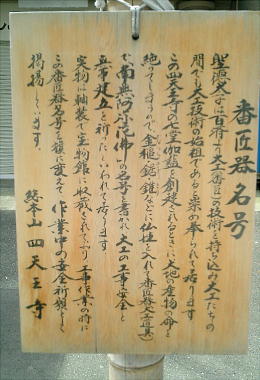 番匠器名号
聖徳太子は百済より大工(番匠)の技術を持ち込み大工たちの
間でも大工技術の始祖であると崇め奉られて居ります
この四天王寺の七堂伽藍を創建されるときに大地の産物の命を
絶ってしまうので金槌、鋸、鑓などに仏性を入れて番匠器(大工道具)
で南無阿弥陀佛の名号を書かれ大工の工事安全と
五帝建立を祈ったといわれて居ります
実物は軸装で宝物館に収蔵されており 工事作業の時に
この番匠器名号を旗に変えて 作業中の安全祈願をし
掲揚しています。
総本山 四天王寺